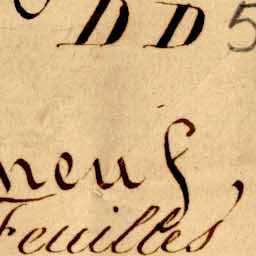 D D 5
neuf,
Feuilles